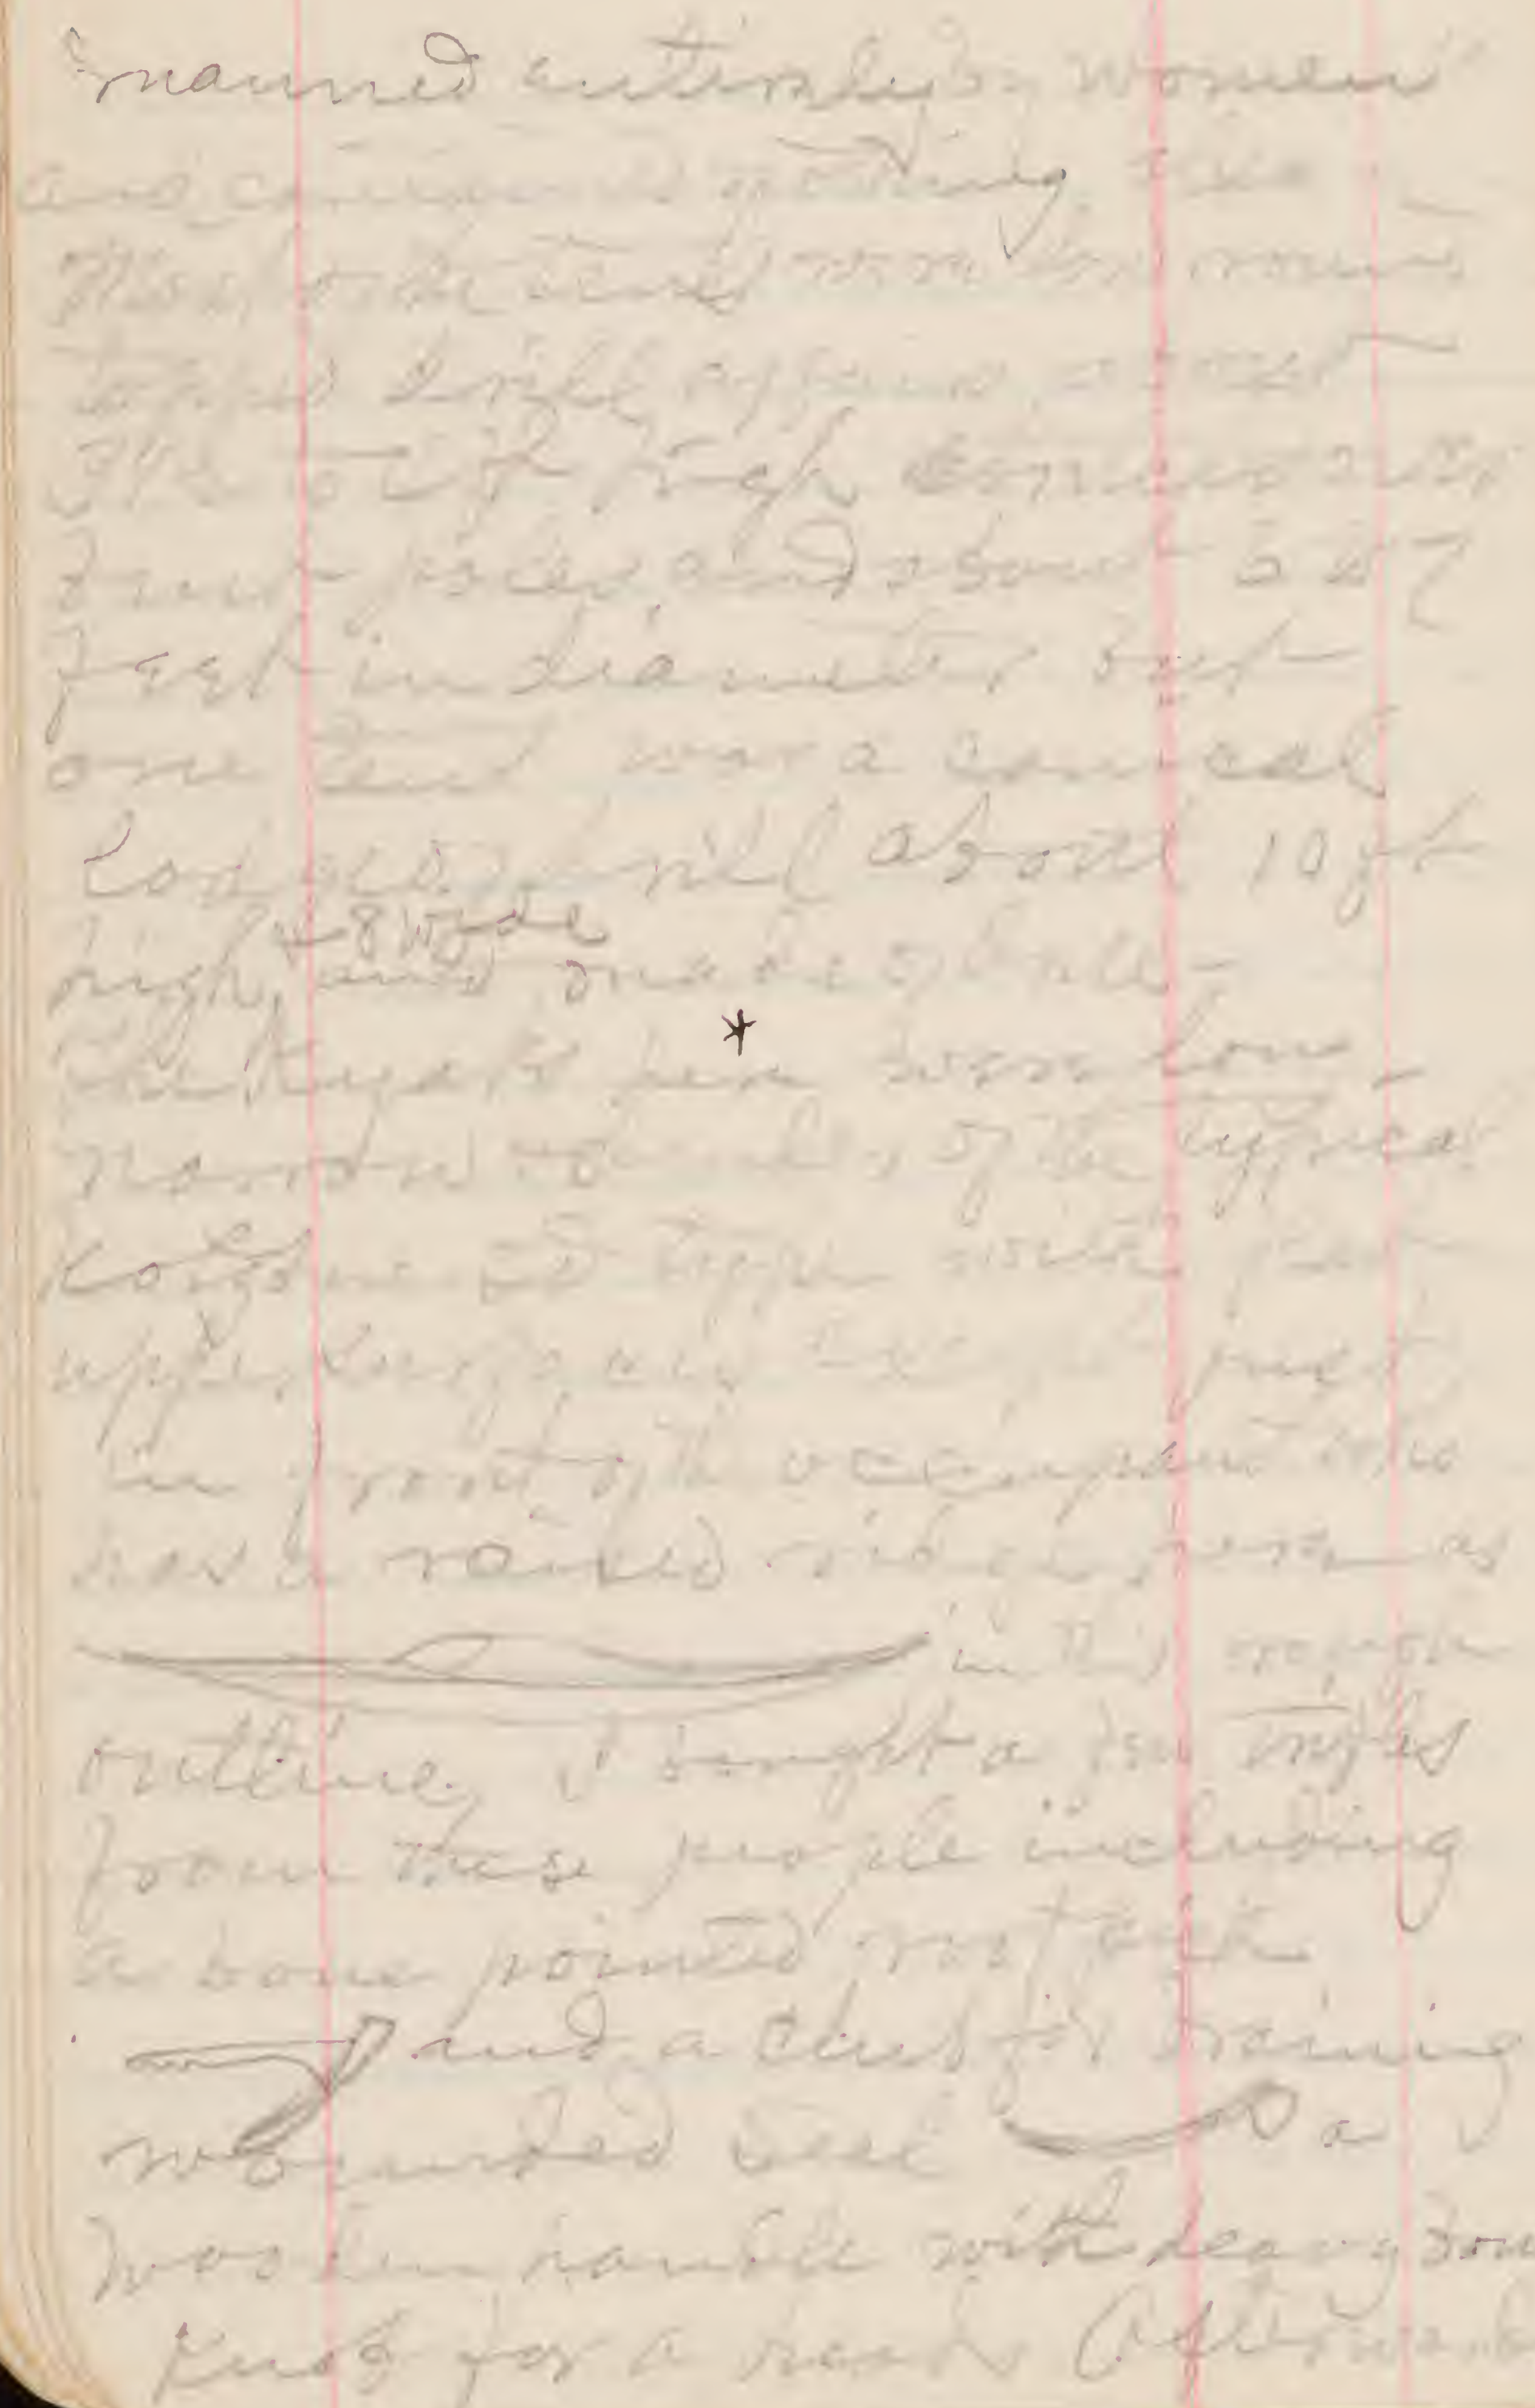 manned entirely by women
and containing nothing else
Most of the tents were low round
topped drill affairs about
3 1/2 to 4 ft high
bent poles, and about 6 to 7
feet in diameter but
one tent was a conical
lodge drill about 10 ft
high, + 8 wide and made of
The Kyaks here were long
narrow of the typical
Kotzebue Sd type with flat
upper surface except just
in front of the occupant who
has a raised ridge, here as
in this rough
outline, I bought a few things
from these people including
a bone pointed root pick
and a club for braining
wounded seal a
wooden handle with heavy bone
knob for a head. Afterward